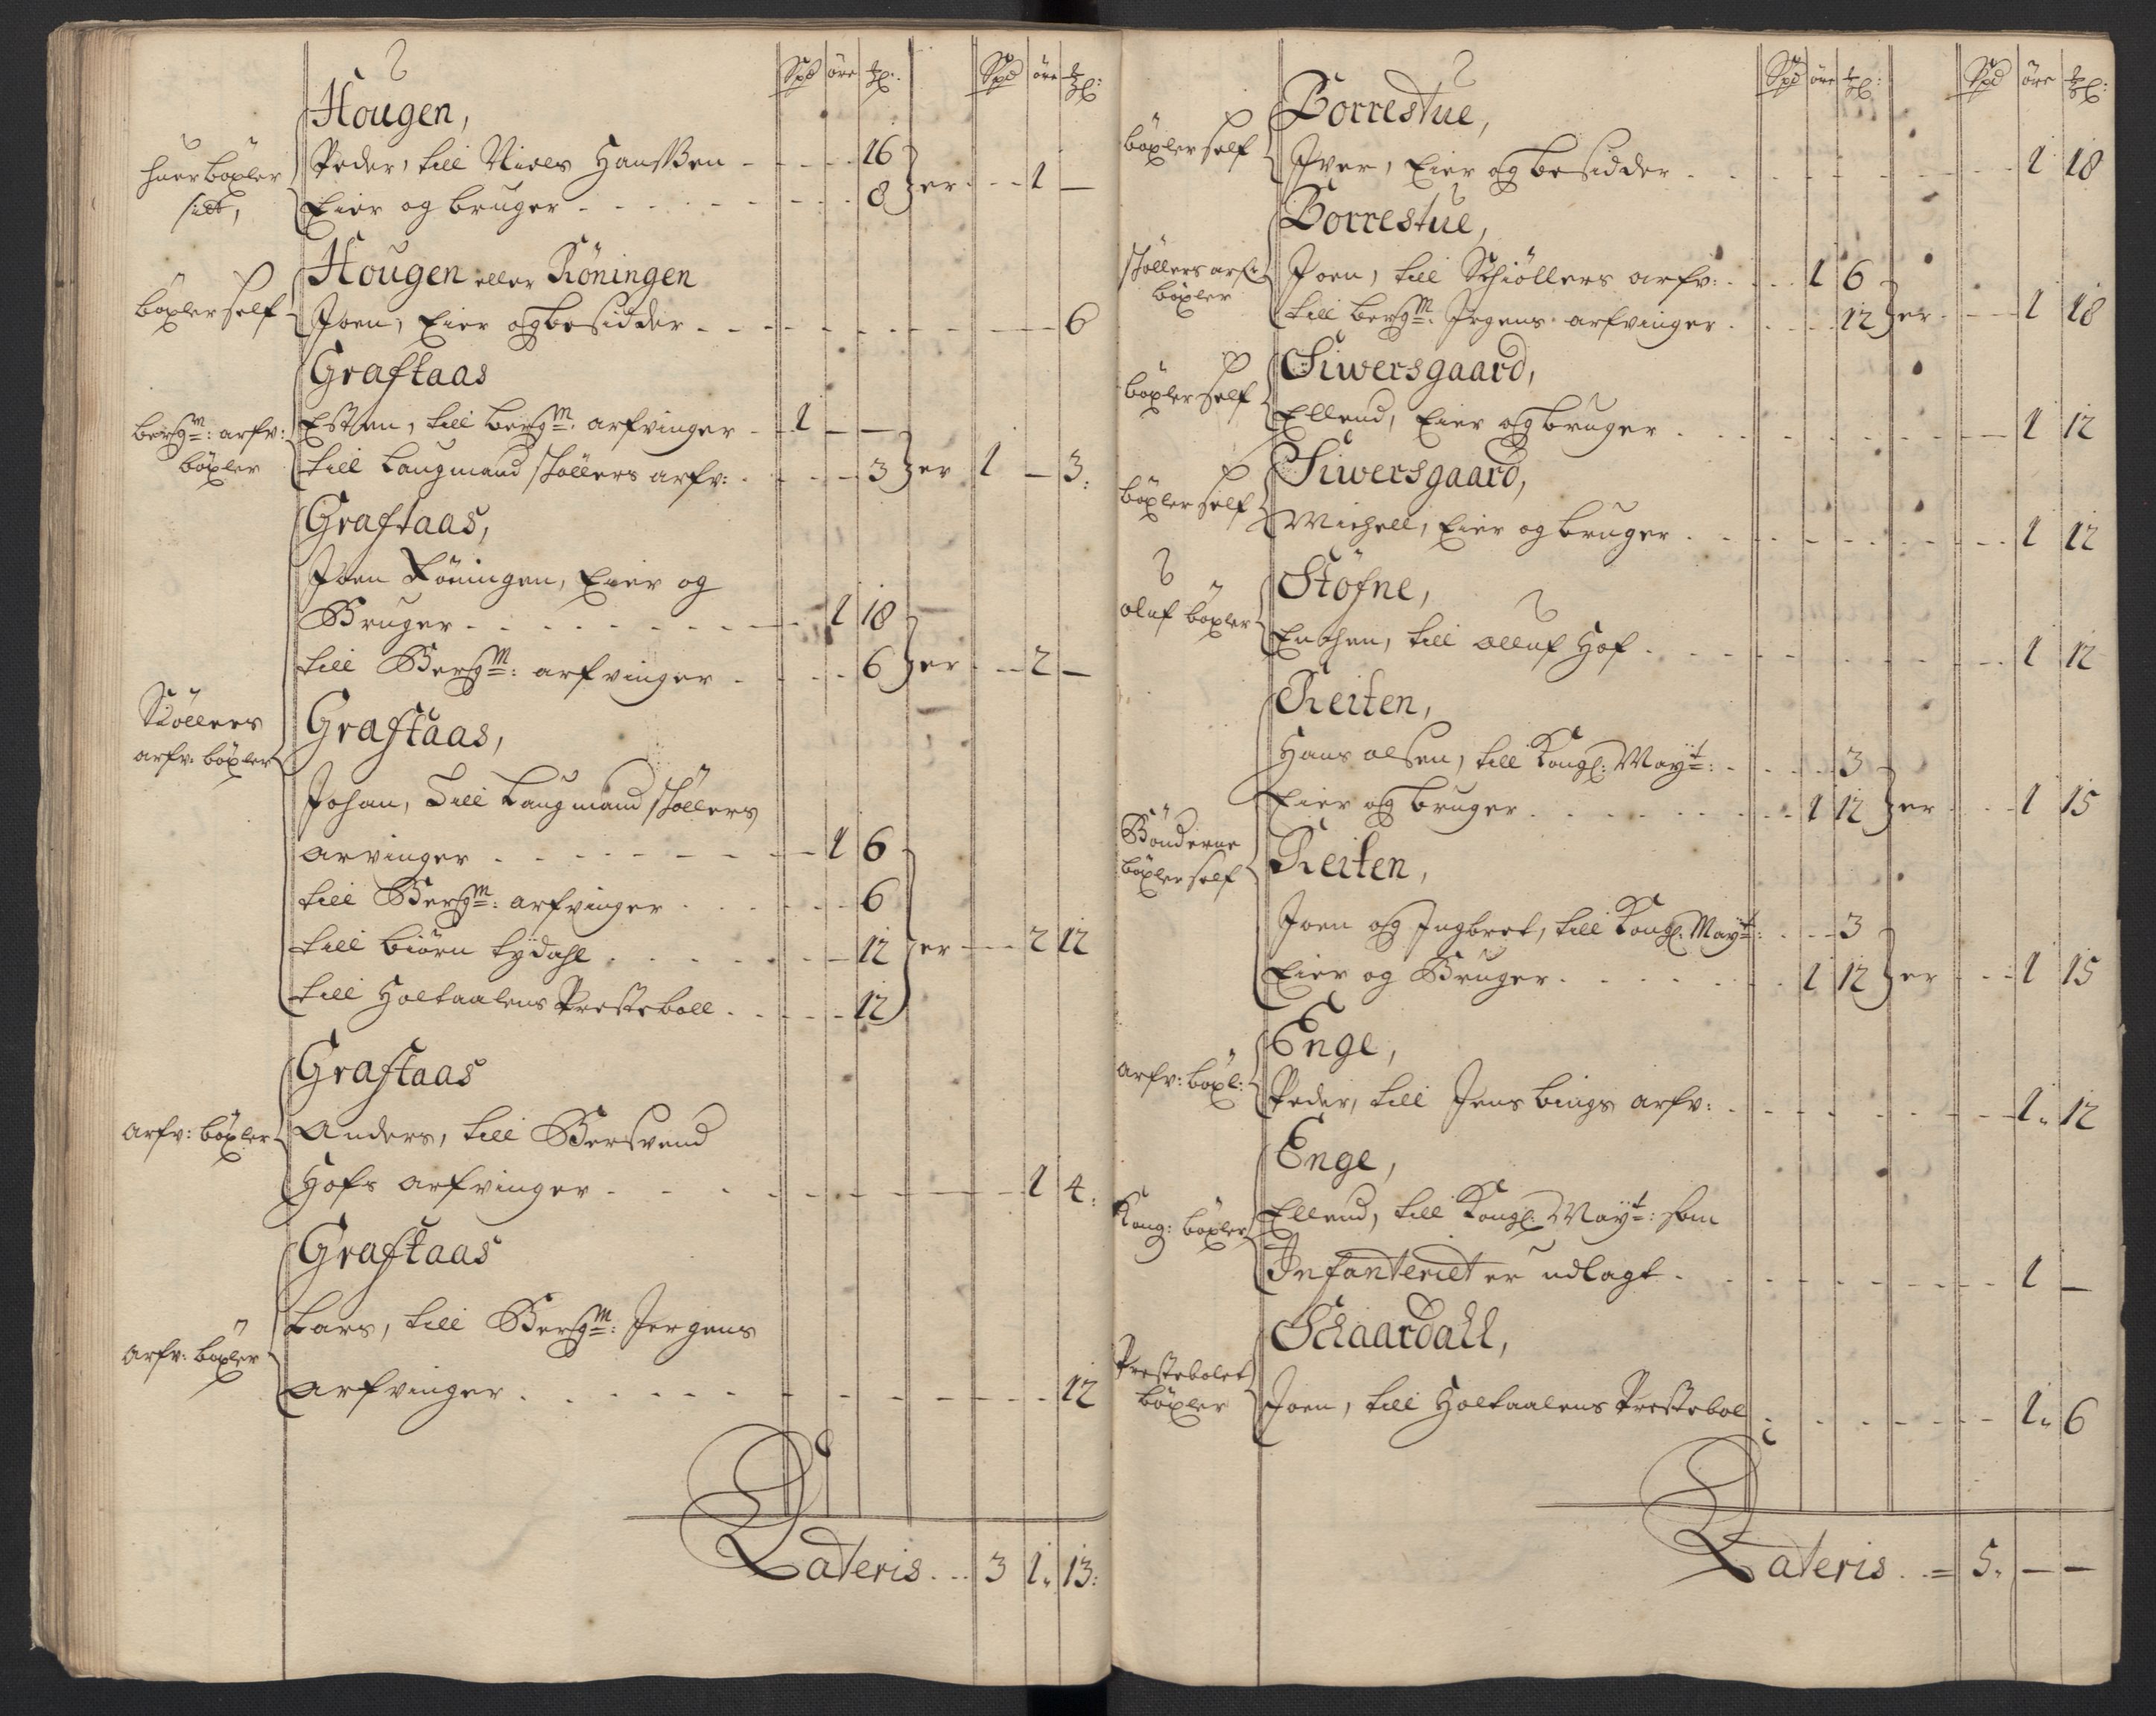 Spd öre xl: Spd öre xl:
Hougen,
huer böxler
sitt,
Peder, till Niels Hanssen - - - 16
Eier og bruger - - - 8 er - - 1 –
Hougen eller Röningen
böxler self
Joen, Eier og besidder - - - 6
Graftaas
bergm: arfv:
böxler
Esten, till bergm: arfvinger - 1 – –
till Laugmand Sköllers arfv: - - - 3 er 1 – 3:
Graftaas,
Joen Röningen, Eier og
Bruger - - - 1 18
till Bergm: arfvinger - - - 6 er - - 2 –
Sköllers
arfv: böxler
Graftaas,
Johan, Till Laugmand Sköllers
arvinger - - - 1 6
till Bergm: arfvinger - - - 6
till biörn tydahl - - - 12 er - - 2 12
till Holtaalens Presteboll - - - 12
Graftaas
arfv: böxler
Anders, till Bersvend
Hofs arfvinger - - - 1 4:
Graftaas
arfv: böxler
Lars, till Bergm: Jrgens
arfvinger - - - 12
Lateris - - 3 1" 13:
Spd öre xl: Spd öre xl:
Borrestue,
böxler self
Iver, Eier og besidder - - - 1 18
Borrestue,
Sköllers arfv:
böxler
Joen, till Schiöllers arfv: - - 1 6
till bergm: Jrgens arfvinger - - - 12 er - - 1 18
Siwersgaard,
böxler self
Ellend, Eier og bruger - - - 1 12
Siwersgaard,
böxler self
Michell, Eier og bruger - - - 1 12
Stöfne,
oluf böxler
Enchen, till Olluf Hof - - - 1 12
Reiten,
Hans olsen, till Kongl: Mayt: - - - 3
Eier og bruger - - - 1 12 er - - 1 15
Bönderne
böxler self
Reiten,
Joen og Ingbret, till Kongl: Mayt: - - 3
Eier og Bruger - - - 1 12 er - - 1 15
Enge,
arfv: böxl:
Peder, till Jens bings arfv: - - - 1" 12
Enge,
Kong: böxler
Ellend, till Kongl: Mayt: som
Infanteriet er udlagt - - - 1 –
Schaardall,
Prestebolet
böxler
Joen, till Holtaalens Prestebol - - - 1" 6
Lateris - = 5" – –